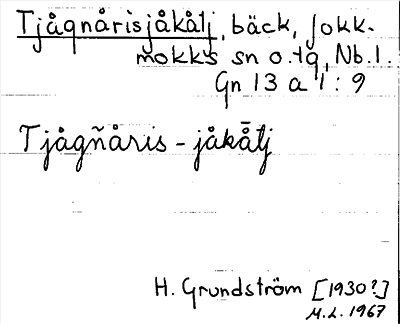 Tjågnårisjåkålj, bäck, Jokk-
mokks sn o. tg, Nb. l.
Gn 13 a 1 : 9
Tjågñåris - jåkå̄lj
H. Grundström [1930?]
M.L. 1967